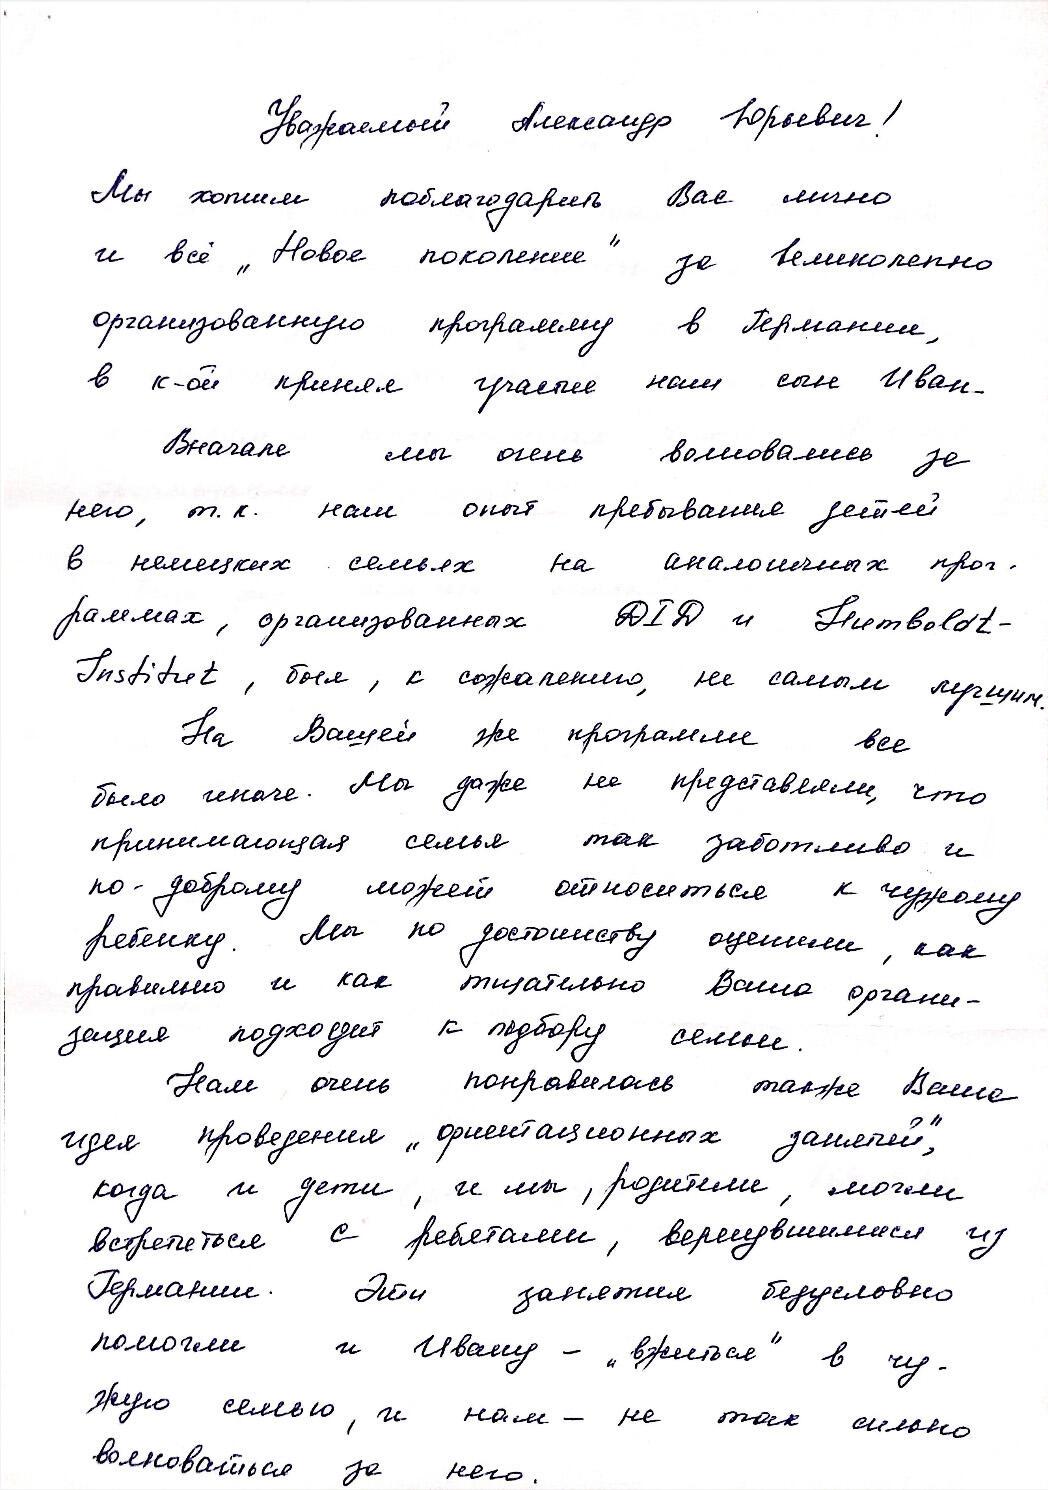 Уважаемый Александр Юрьевич!
Мы хотим поблагодарить Вас лично
и всё „Новое поколение" за великолепно
организованную программу в Германии,
в к-ой принял участие наш сын Иван.
Вначале мы очень волновались за
него, т.к. наш опыт пребывания детей
в немецких семьях на аналогичных прог-
раммах, организованных DID и Humboldt-
Institut, был, к сожалению, не самым лучшим.
На Вашей же программе все
было иначе. Мы даже не представляли, что
принимающая семья так заботливо и
по-доброму может относиться к чужому
ребенку. Мы по достоинству оценили, как
правильно и как тщательно Ваша органи-
зация подходит к подбору семьи.
Нам очень понравилась также Ваша
идея проведения „ориентационных занятий",
когда и дети, и мы, родители, могли
встретиться с ребятами, вернувшимися из
Германии. Эти занятия безусловно
помогли и Ивану – „вжиться" в чу-
жую семью, и нам – не так сильно
волноваться за него.